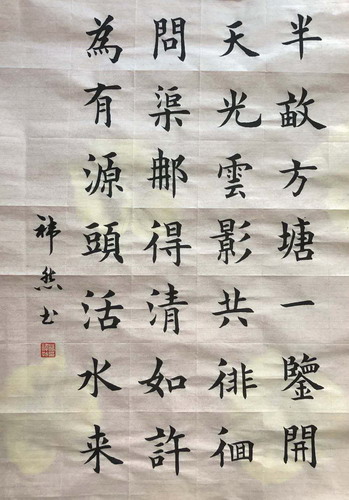 半畝方塘一鑒開
天光雲影共徘徊
問渠那得清如許
為有源頭活水来
禕然书